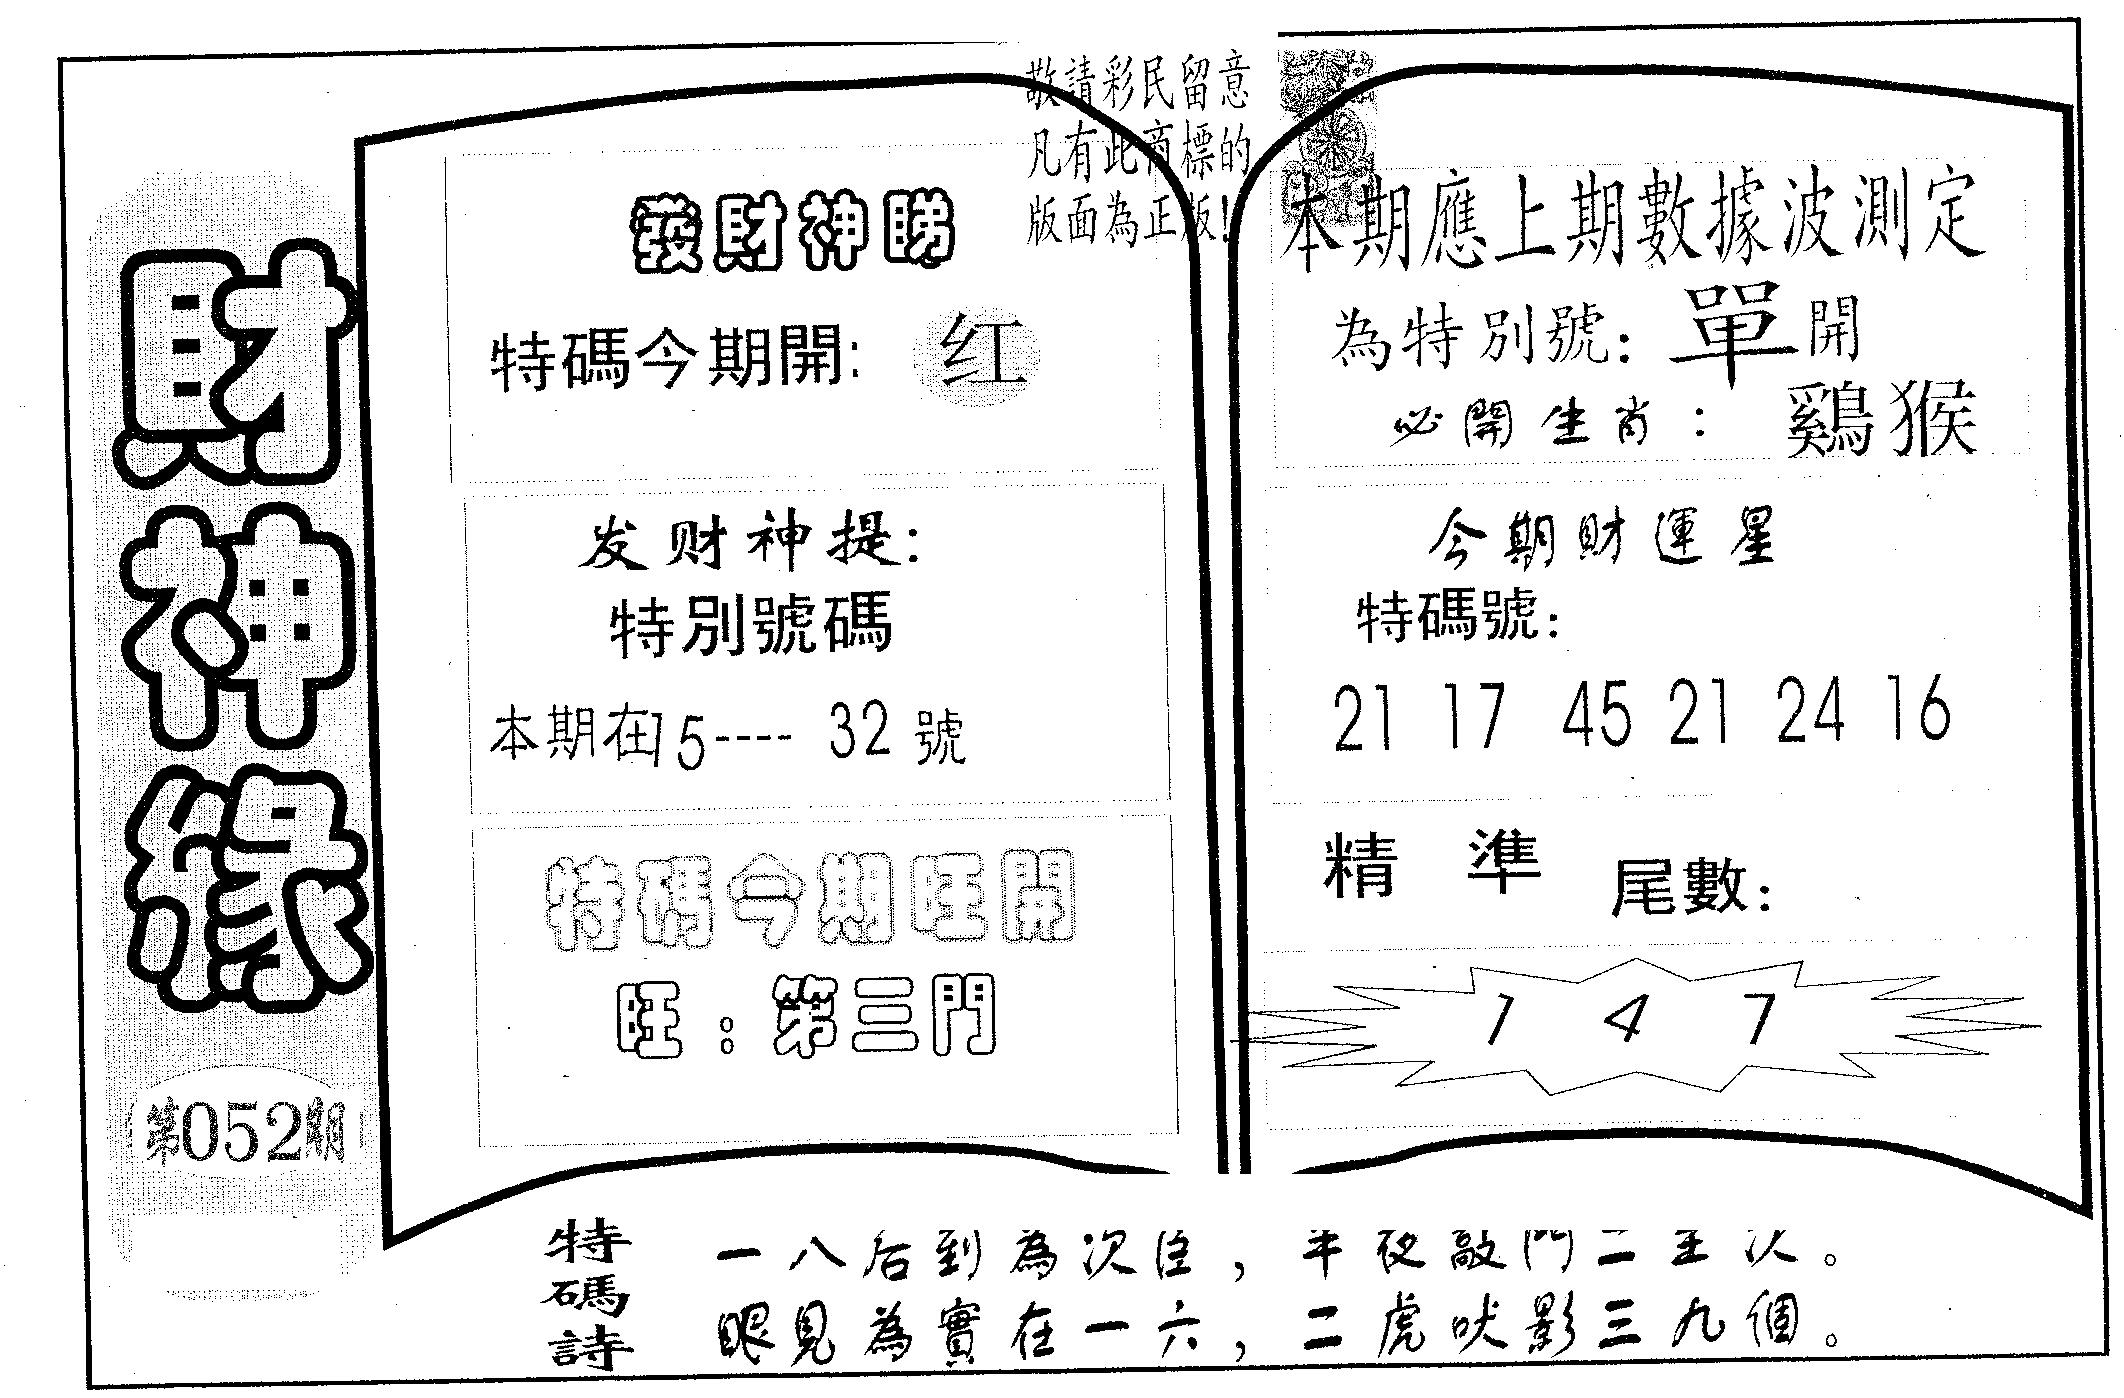 財神緣
第052期
敬請彩民留意
凡有此商標的
版面為正版!
發財神睇
特碼今期開:红
发财神提:
特別號碼
本期在15----32號
特碼今期旺開
旺:第三門
本期應上期數據波測定
為特別號:單開
必開生肖:鷄猴
今期財運星
特碼號:
21 17 45 21 24 16
精準尾數:
1 4 7
特碼詩
一八后到為次臣,半夜敲門二至次。
眼見為實在一六,二虎吠影三九個。